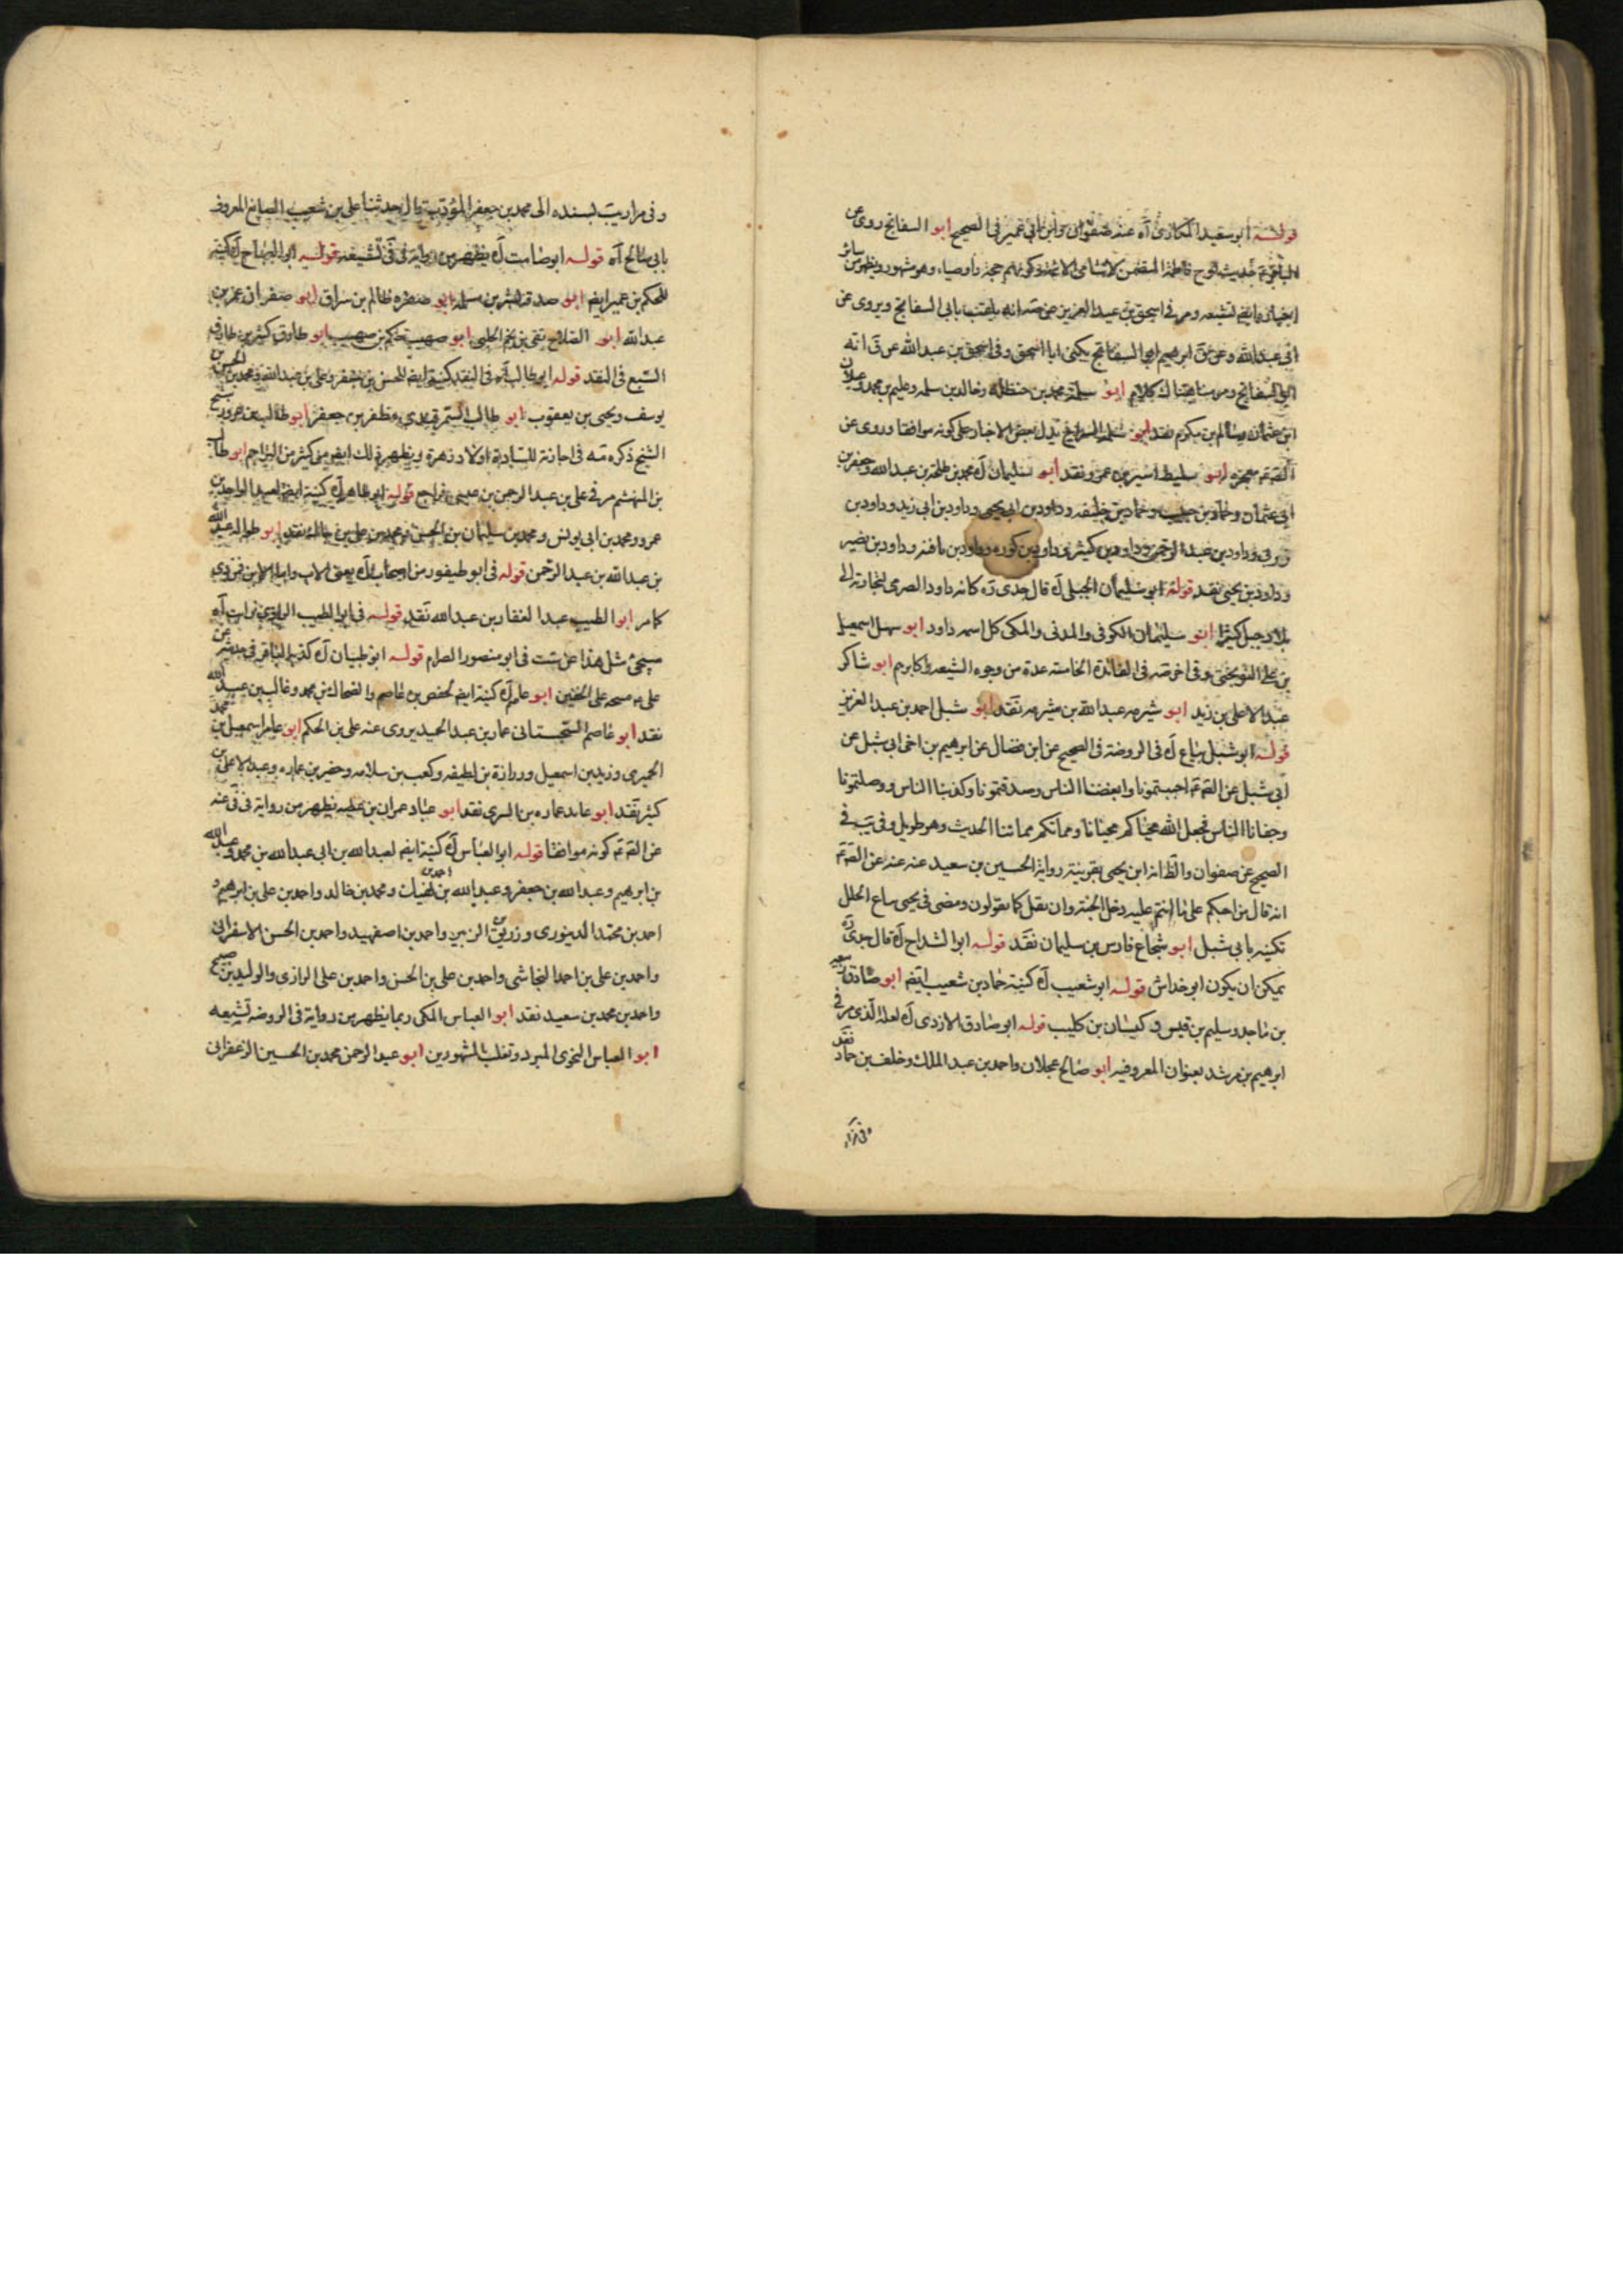 قوله ابو سعيد المكارى آه عنه صفوان وابن ابي عمير في الصحيح ابو السفاتج روى عن
الباقر ع حديث لوح فاطمة المتضمن لاسامى الائمة وكونهم حججا واوصياء وهو مشهور ويظهر من سائر
اخباره ايضا تشيعه ومر في اسحق بن عبد العزيز عن ضه انه يلقب بابي السفاتج ويروى عن
ابي عبد الله وعن ق ابرهيم ابو السفاتج يكنى ابا اسحق وفي اسحق بن عبد الله عن ق انه
ابو السفاتج ومر منا هناك كلام ابو سلمة محمد بن حنظلة وخالد بن سلمه وعليم بن محمد وعلان
ابن عثمان وسالم بن مكرم نقد ابو سلمة السراج يدل بعض الاخبار على كونه موافقا وروى عن
الص ع معجزه ابو سليط اسير بن عمرو نقد ابو سليمان آه محمد بن طلحة بن عبد الله وجعفر بن
ابي عثمان وحماد بن حبيب وحماد بن خليفه وداود بن ابي يحيى وداود بن ابي زيد وداود بن
زربى وداود بن عبد الرحمن وداود بن كثير وداود بن كوره وداود بن مافنه وداود بن نصير
وداود بن يحيى نقد قوله ابو سليمان الجبلى آه قال جدى ره كانه داود الصرمى لتجارته الى
بلاد جبل كثيرا ابو سليمان الكوفى والمدنى والمكى كل اسمه داود ابو سهل اسمعيل
بن على النوبختى وفي اخر ضه في الفائدة الخامسه عده من وجوه الشيعه واكابرهم ابو شاكر
عبد الاعلى بن زيد ابو شبرمه عبد الله بن شبرمه نقد ابو شبل احمد بن عبد العزيز
قوله ابو شبل بياع آه في الروضة في الصحيح عن ابن فضال عن ابرهيم بن اخى ابي شبل عن
ابي شبل عن الص ع احببتمونا وابغضنا الناس وصدقتمونا وكذبنا الناس ووصلتمونا
وجفانا الناس فجعل الله محياكم محيانا ومماتكم مماتنا الحديث وهو طويل وفي يب في
الصحيح عن صفوان والظ انه ابن يحيى بقرينة رواية الحسين بن سعيد عنه عنه عن الص ع
انه قال من احبكم على ما انتم عليه دخل الجنة وان لم يقل كما تقولون ومضى في يحيى بياع الحلل
تكنيه بابي شبل ابو شجاع فارس بن سليمان نقد قوله ابو الشداخ آه قال جدى ره
يمكن ان يكون ابو خداش قوله ابو شعيب آه كنية حماد بن شعيب ايضا ابو صادق سعيد
بن ماجد وسليم بن قيس وكيسان بن كليب قوله ابو صادق الازدى آه لعله الذى مر في
ابرهيم بن مرشد بعنوان المعروفيه ابو صالح عجلان واحمد بن عبد الملك وخلف بن حماد نقد
وفي مرآة
وفي مراريب بسنده الى محمد بن جعفر المؤدب قال حدثنا على بن شعيب الصايغ المعروف
بابي صالح آه قوله ابو صامت آه يظهر من رواية في في تشيعه قوله ابو الصباح آه كنية
للحكم بن عمير ايضا ابو صدقة بشر بن مسلمه ابو صفره ظالم بن سراق ابو صفوان عمر بن
عبد الله ابو الصلاح تقى بن نجم الحلبى ابو صهيب حكم بن صهيب ابو طارق كثير بن طارق
السبع في النقد قوله ابو طالب آه في النقد كنية ايضا للحسن بن جعفر وعلى بن عبد الله ومحمد بن الحسين بن
يوسف ويحيى بن يعقوب ابو طالب السمرقندى مظفر بن جعفر ابو طالب بن عرور شيخ
الشيخ ذكره مه في اجازته للسادة اولاد زهرة ويظهر ذلك ايضا من كثير من التراجم ابو طالب
بن المهشم مر في على بن عبد الرحمن بن عيسى فراجع قوله ابو طاهر آه كنية ايضا لعبد الواحد بن
عمرو ومحمد بن ابي يونس ومحمد بن سليمان بن الحسن ومحمد بن على بن جاك نقد ابو طواله عبد الله
بن عبد الله بن عبد الرحمن قوله في ابو طيفور من اصحاب آه يعنى الاب واما الابن فمن دى
كما مر ابو الطيب عبد الغفار بن عبد الله نقد قوله في ابو الطيب الرازى آه
سيجئ مثل هذا عن ست في ابو منصور الصرام قوله ابو ظبيان آه كذبه الباقر في عن
على ع مسحه على الخفين ابو عاصم آه كنية ايضا لحفص بن عاصم والضحاك بن محمد وغالب بن عبيد الله
نقد ابو عاصم السجستانى عمار بن عبد الحميد يروى عنه على بن الحكم ابو عامر اسمعيل بن محمد
الحميرى وزيد بن اسمعيل وزرارة بن لطيفه وكعب بن سلامه وحضير بن عماره وعبد الاعلى بن
كثير نقد ابو عامد عماره بن السرى نقد ابو عباد عمران بن عطيه يظهر من رواية في في عنه
عن الص ع كونه موافقا قوله ابو العباس آه كنية ايضا لعبد الله بن ابي عبد الله بن محمد وعبد الله
بن ابرهيم وعبد الله بن جعفر وعبد الله بن احمد بن محمد بن خالد واحمد بن على بن ابرهيم و
احمد بن محمد الدينورى وزريق بن الزبير واحمد بن اصفهبد واحمد بن الحسن الاسفراينى
واحمد بن على بن احمد النجاشى واحمد بن على بن الحسن واحمد بن على الرازى والوليد بن صبيح
واحمد بن محمد بن سعيد نقد ابو العباس المكى ربما يظهر من رواية في الروضه تشيعه
ابو العباس النحوى المبرد وثعلب المشهورين ابو عبد الرحمن محمد بن الحسين الزعفرانى